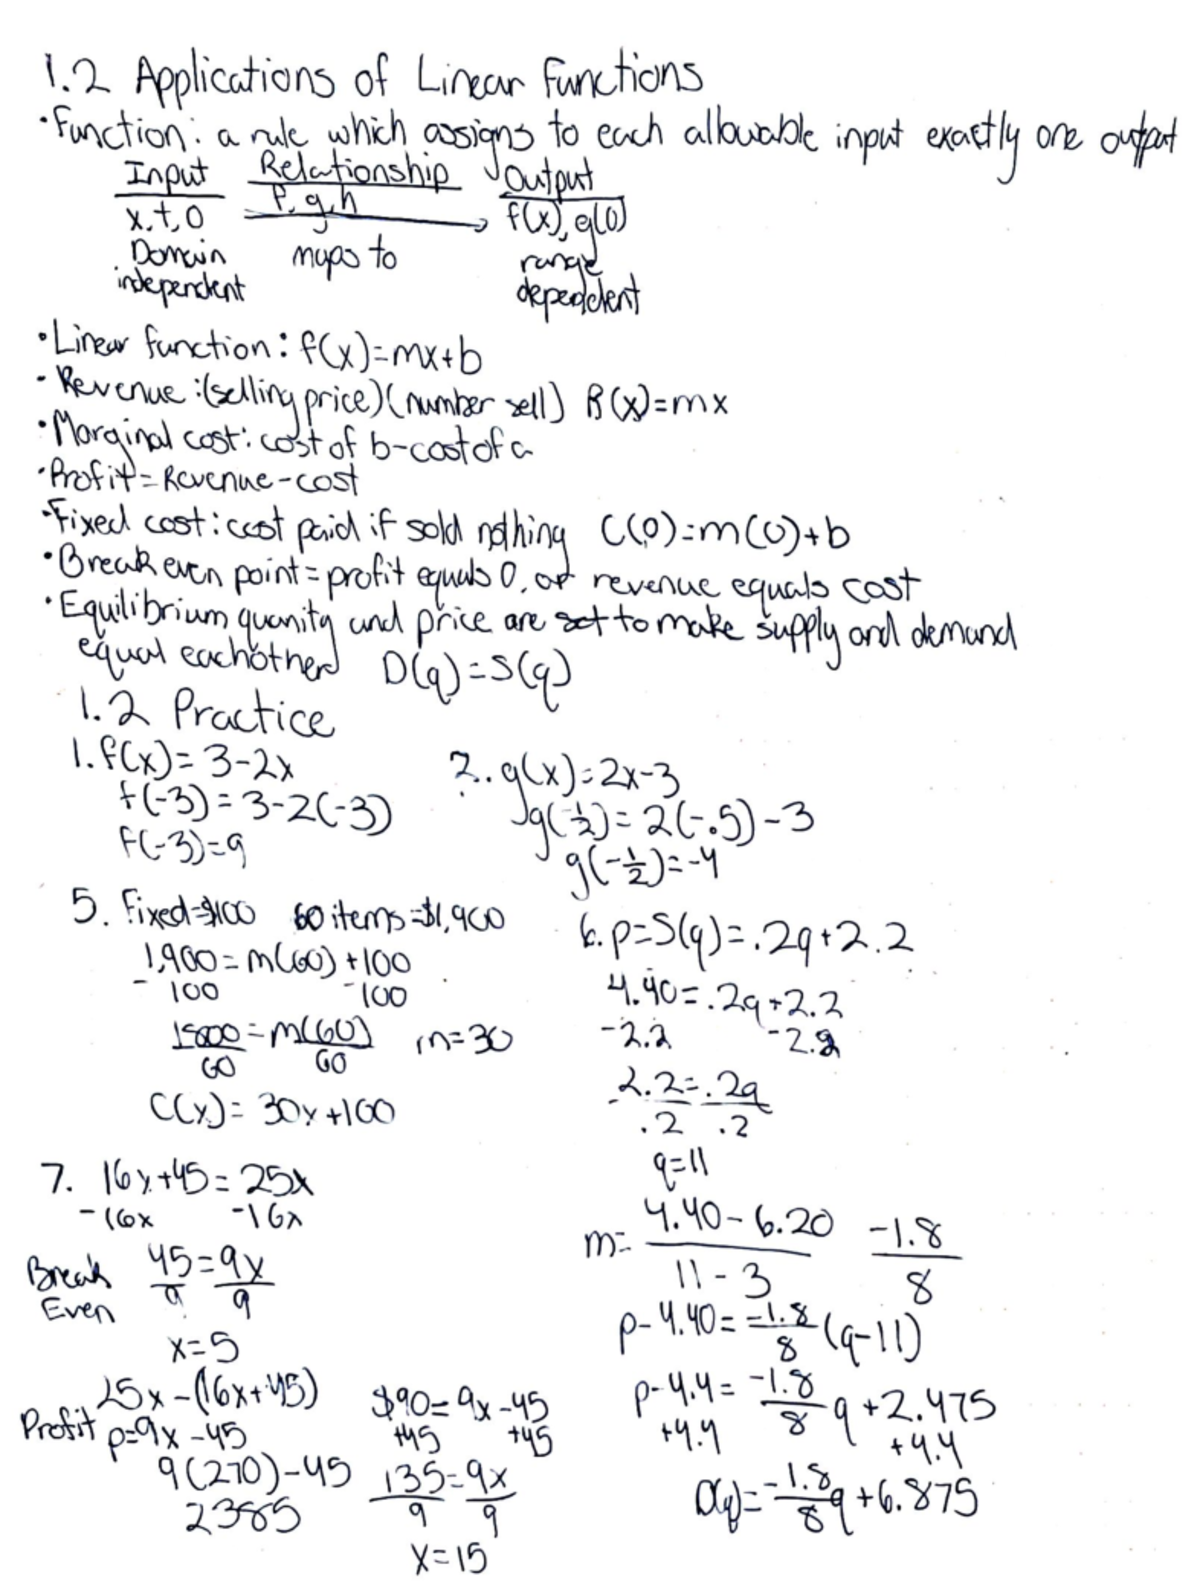 1.2 Applications of Linear Functions
• Function: a rule which assigns to each allowable input exactly one output
Input Relationship Output
x, t, 0 f, g, h f(x), g(0)
Domain maps to range
independent dependent
• Linear function: f(x)=mx+b
• Revenue: (selling price)(number sell) R(x)=mx
• Marginal cost: cost of b-cost of a
• Profit = Revenue-cost
• Fixed cost: cost paid if sold nothing C(0)=m(0)+b
• Break even point = profit equals 0, or revenue equals cost
• Equilibrium quanity and price are set to make supply and demand
equal eachother D(q)=S(q)
1.2 Practice
1. f(x)= 3-2x
f(-3)=3-2(-3)
f(-3)=9
2. g(x)=2x-3
g(-1/2)= 2(-.5)-3
g(-1/2)=-4
5. Fixed=$100 60 items=$1,900
1,900=m(60)+100
-100 -100
1800/60=m(60)/60 m=30
C(x)= 30x+100
6. p=S(q)=.2q+2.2
4.40=.2q+2.2
-2.2 -2.2
2.2/.2=.2q/.2
q=11
m= 4.40-6.20/11-3 -1.8/8
p-4.40=-1.8/8(q-11)
p-4.4=-1.8/8q+2.475
+4.4 +4.4
D(q)=-1.8/8q+6.875
7. 16x+45=25x
-16x -16x
Break Even 45/9=9x/9
x=5
25x-(16x+45)
Profit p=9x-45
9(270)-45
2385
$90=9x-45
+45 +45
135/9=9x/9
x=15